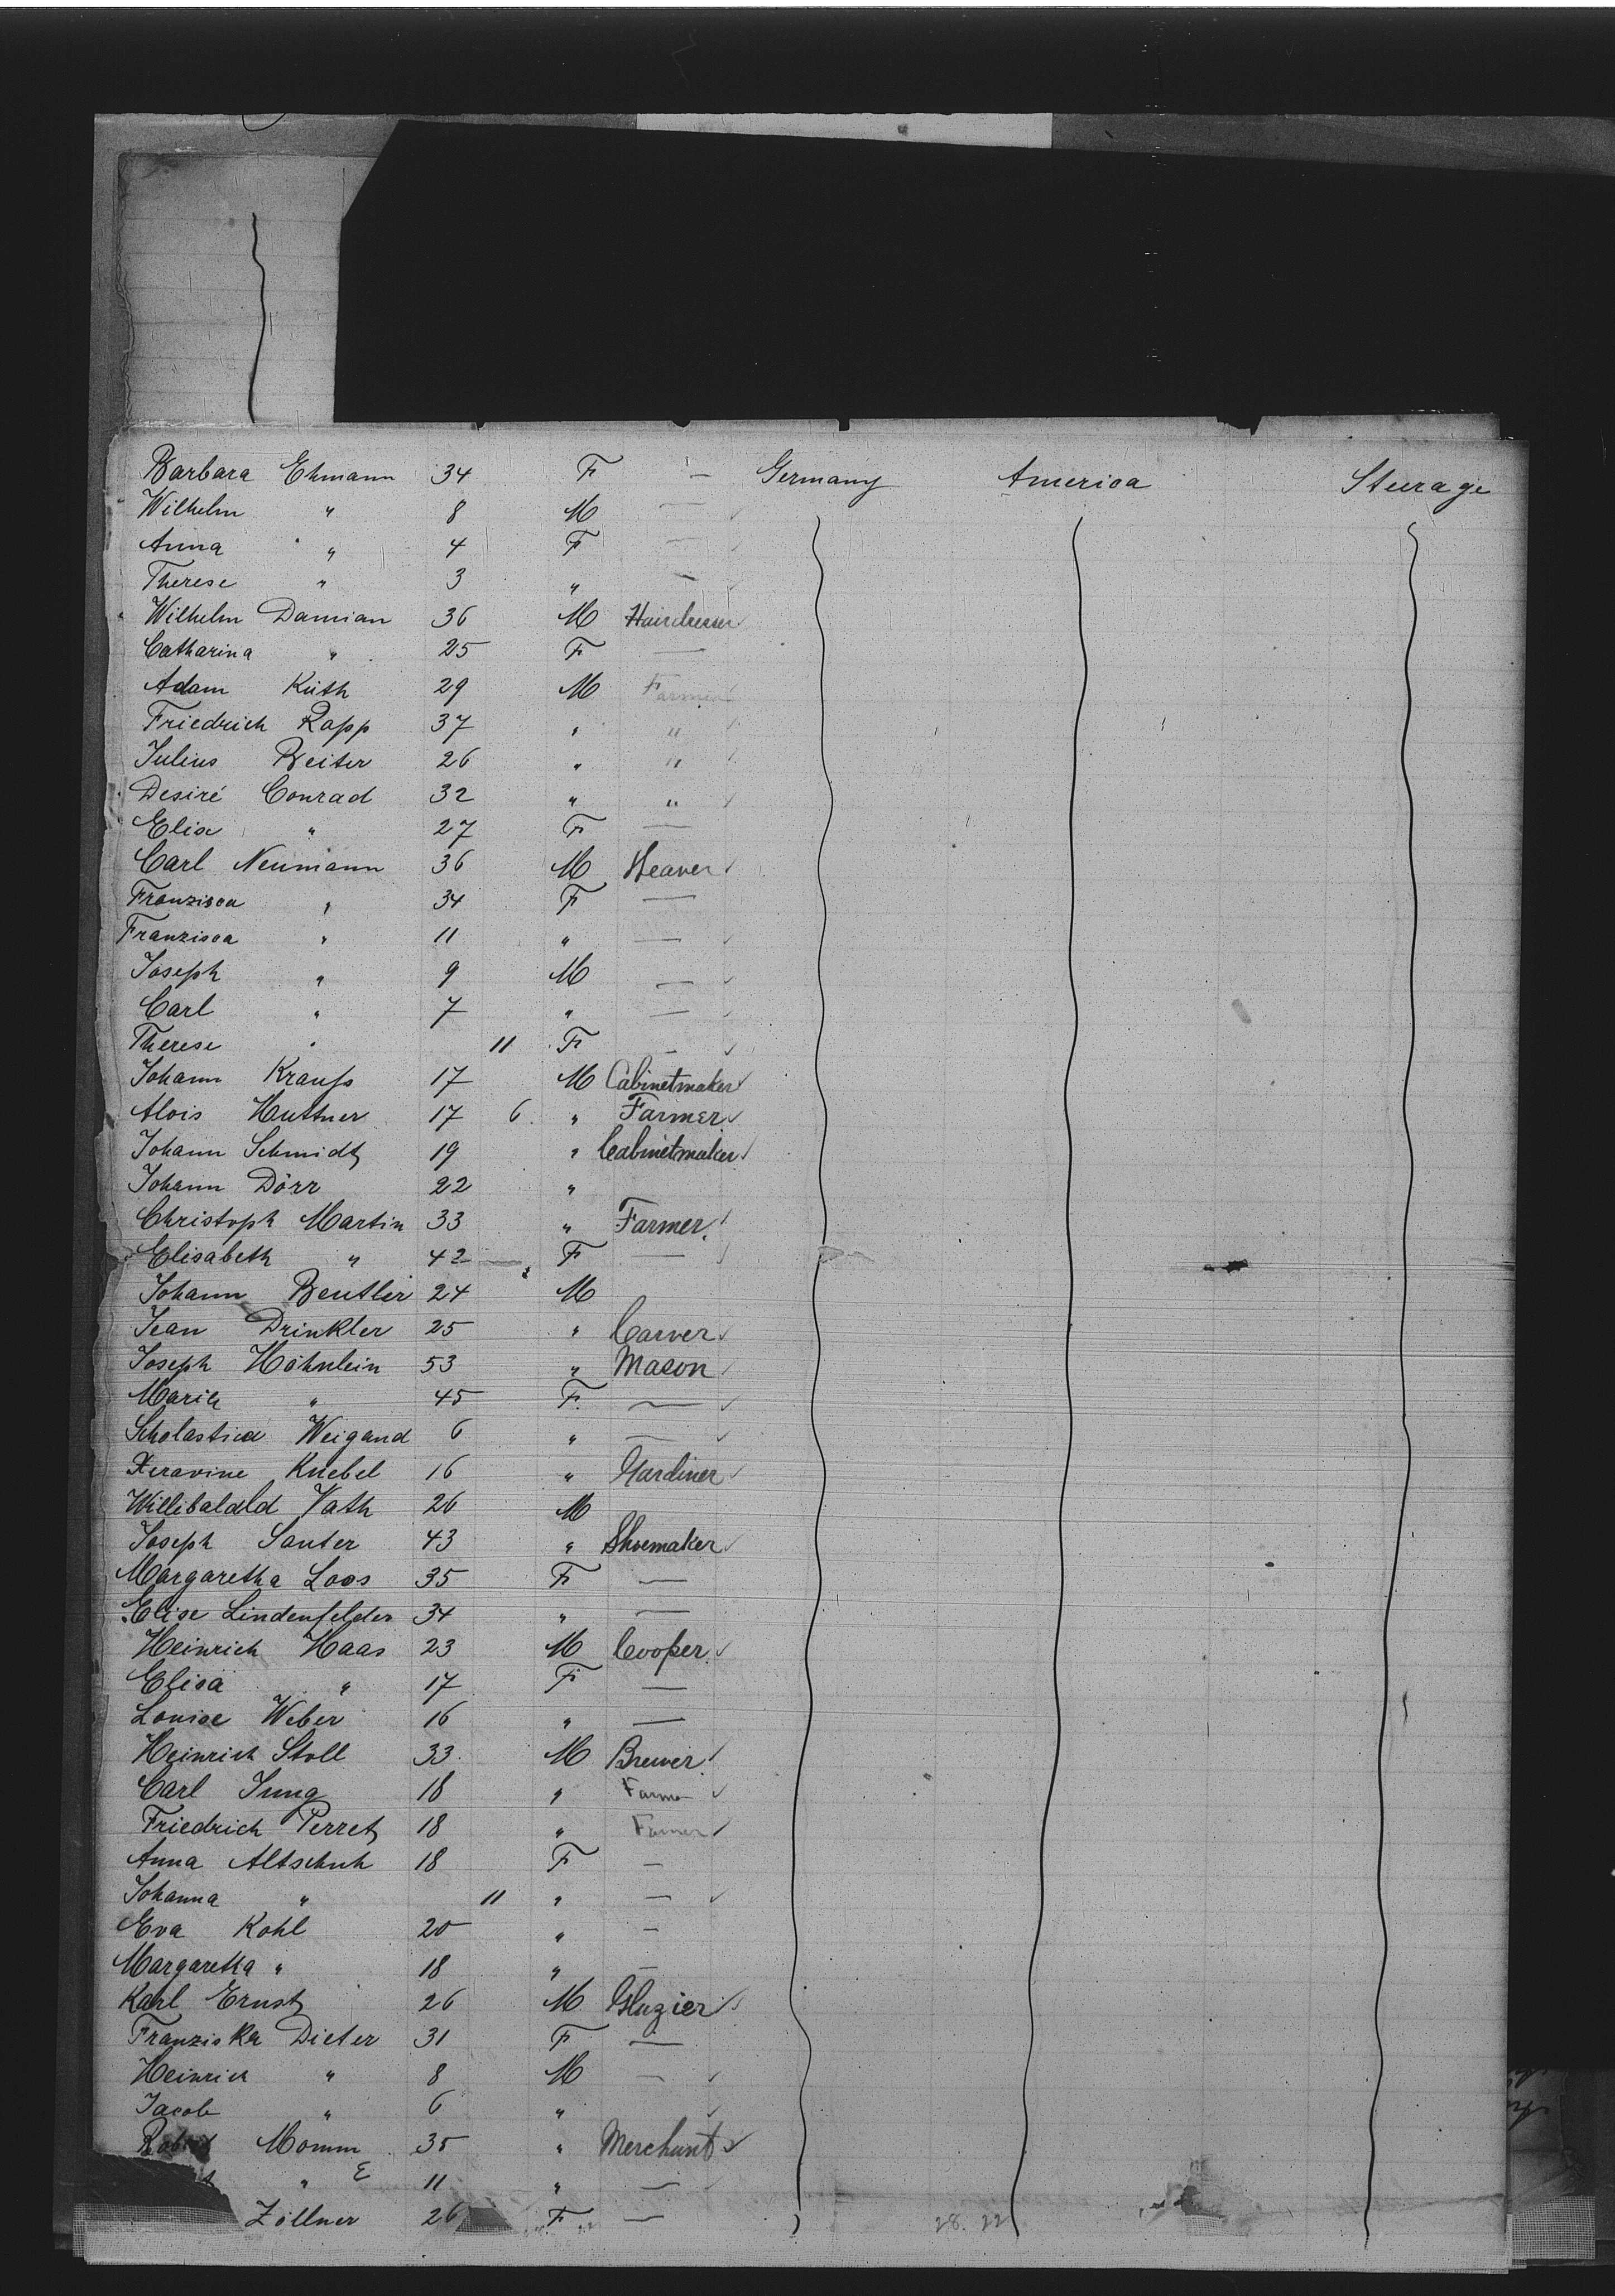 Barbara Ehmann 34 F — Germany America Steerage
Wilhelm " 8 M —
Anna " 4 F —
Therese " 3 " —
Wilhelm Damian 36 M Hairdresser
Catharina " 25 F —
Adam Kuth 29 M Farmer
Friedrich Rapp 37 " "
Julius Beiter 26 " "
Desiré Conrad 32 " "
Elise " 27 F —
Carl Neumann 36 M Weaver
Franzisca " 34 F —
Franzisca " 11 " —
Joseph " 9 M —
Carl " 7 " —
Therese " 11 F —
Johann Krauss 17 M Cabinetmaker
Alois Huttner 17 6 " Farmer
Johann Schmidt 19 " Cabinetmaker
Johann Dörr 22 "
Christoph Martin 33 " Farmer
Elisabeth " 42 — F —
Johann Beutler 24 M
Jean Drinkler 25 " Carver
Joseph Höhnlein 53 " Mason
Maria " 45 F —
Scholastica Weigand 6 " —
Knebel 16 " Gardiner
Willibaldld Vath 26 M
Joseph Sauter 43 " Shoemaker
Margaretha Loos 35 F —
Elise Lindenfelder 34 " —
Heinrich Haas 23 M Cooper
Elisa " 17 F —
Louise Weber 16 " —
Heinrich Stoll 33 M Brewer
Carl Jung 18 " Farmer
Friedrich Perret 18 " Farmer
Anna Altschuh 18 F —
Johanna " 11 " —
Eva Kohl 20 " —
Margaretha " 18 " —
Karl Ernst 26 M Glazier
Franziska Dieter 31 F —
Heinrich " 8 M —
Jacob " 6 "
Robert Momm 35 " Merchant
" E 11 " —
Zöllner 26 F —
28. 22